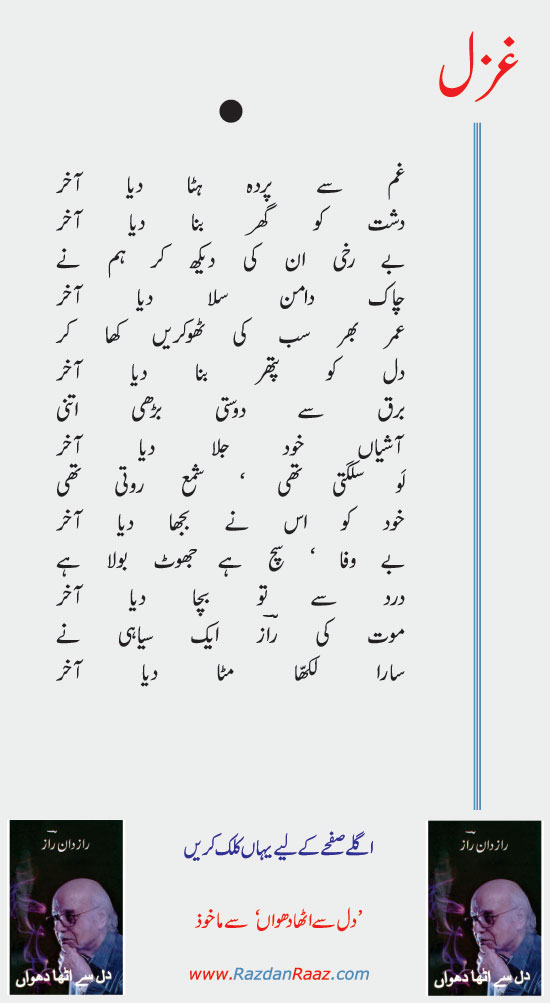 غزل
غم سے پردہ ہٹا دیا آخر
دشت کو گھر بنا دیا آخر
بے رخی ان کی دیکھ کر ہم نے
چاک دامن سلا دیا آخر
عمر بھر سب کی ٹھوکریں کھا کر
دل کو پتھر بنا دیا آخر
برق سے دوستی بڑھی اتنی
آشیاں خود جلا دیا آخر
لَو سلگتی تھی ، شمع روتی تھی
خود کو اس نے بجھا دیا آخر
بے وفا ، سچ ہے جھوٹ بولا ہے
درد سے تو بچا دیا آخر
موت کی رازؔ ایک سیاہی نے
سارا لکھّا مٹا دیا آخر
رازدان رازؔ
دل سے اٹھا دھواں
اگلے صفحے کے لیے یہاں کلک کریں
’دل سے اٹھا دھواں‘ سے ماخوذ
www.RazdanRaaz.com
رازدان رازؔ
دل سے اٹھا دھواں